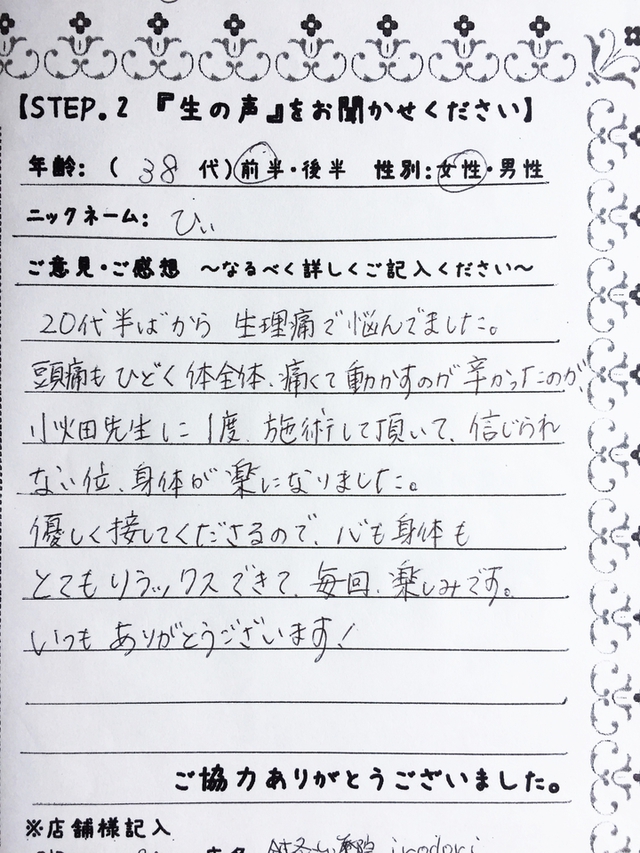 【STEP.2 『生の声』をお聞かせください】
年齢:( 38 代)前半・後半 性別:女性・男性
ニックネーム: ひぃ
ご意見・ご感想 ～なるべく詳しくご記入ください～
20代半ばから 生理痛で悩んでました。
頭痛もひどく体全体、痛くて動かすのが辛かったのが、
小火田先生に1度、施術して頂いて、信じられ
ない位、身体が楽になりました。
優しく接してくださるので、心も身体も
とてもリラックスできて、毎回、楽しみです。
いつもありがとうございます!
ご協力ありがとうございました。
※店舗様記入
irodori